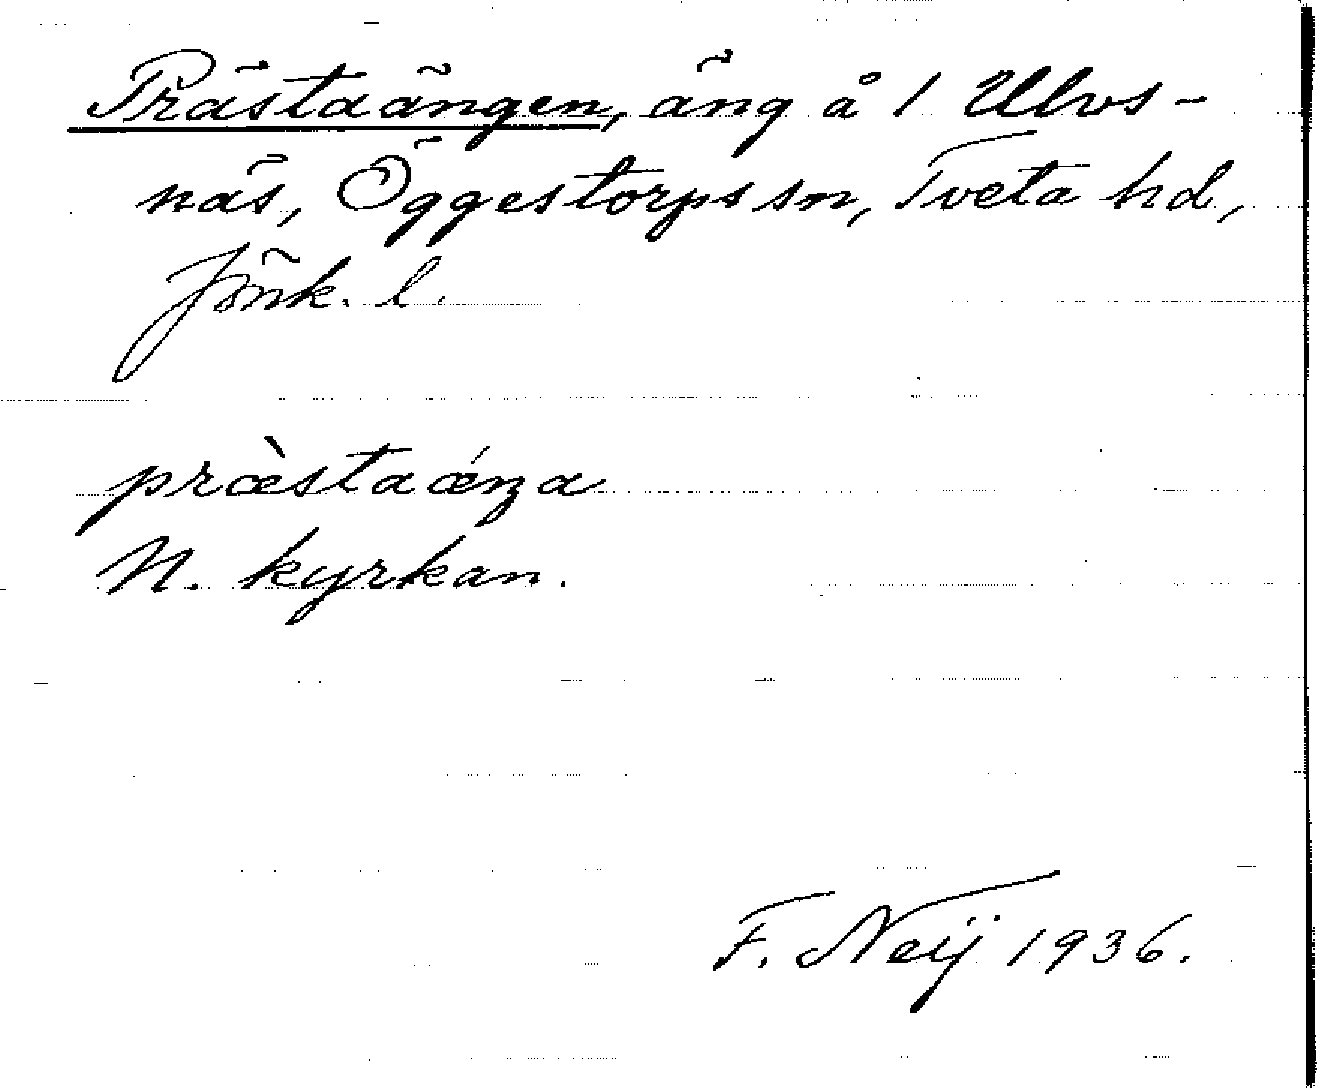 Prästaängen, äng å 1 Ulvs-
näs, Öggestorps sn, Tveta hd,
Jönk. l.
præ̀staǽŋa
N. kyrkan.
F. Neij 1936.